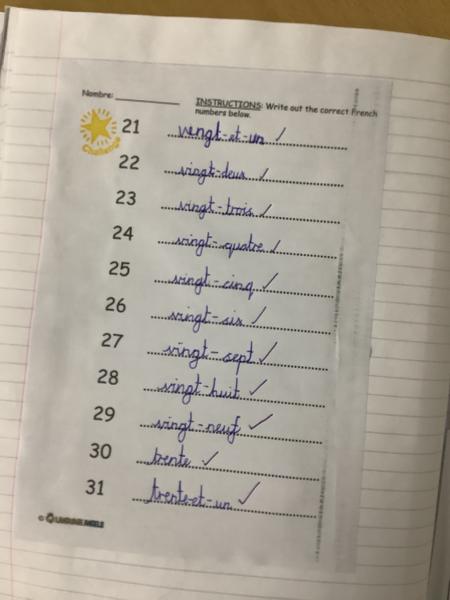 Nombre:
INSTRUCTIONS: Write out the correct French
numbers below.
Challenge
21 vingt-et-un ✓
22 vingt-deux ✓
23 vingt-trois ✓
24 vingt-quatre ✓
25 vingt-cinq ✓
26 vingt-six ✓
27 vingt-sept ✓
28 vingt-huit ✓
29 vingt-neuf ✓
30 trente ✓
31 trente-et-un ✓
©